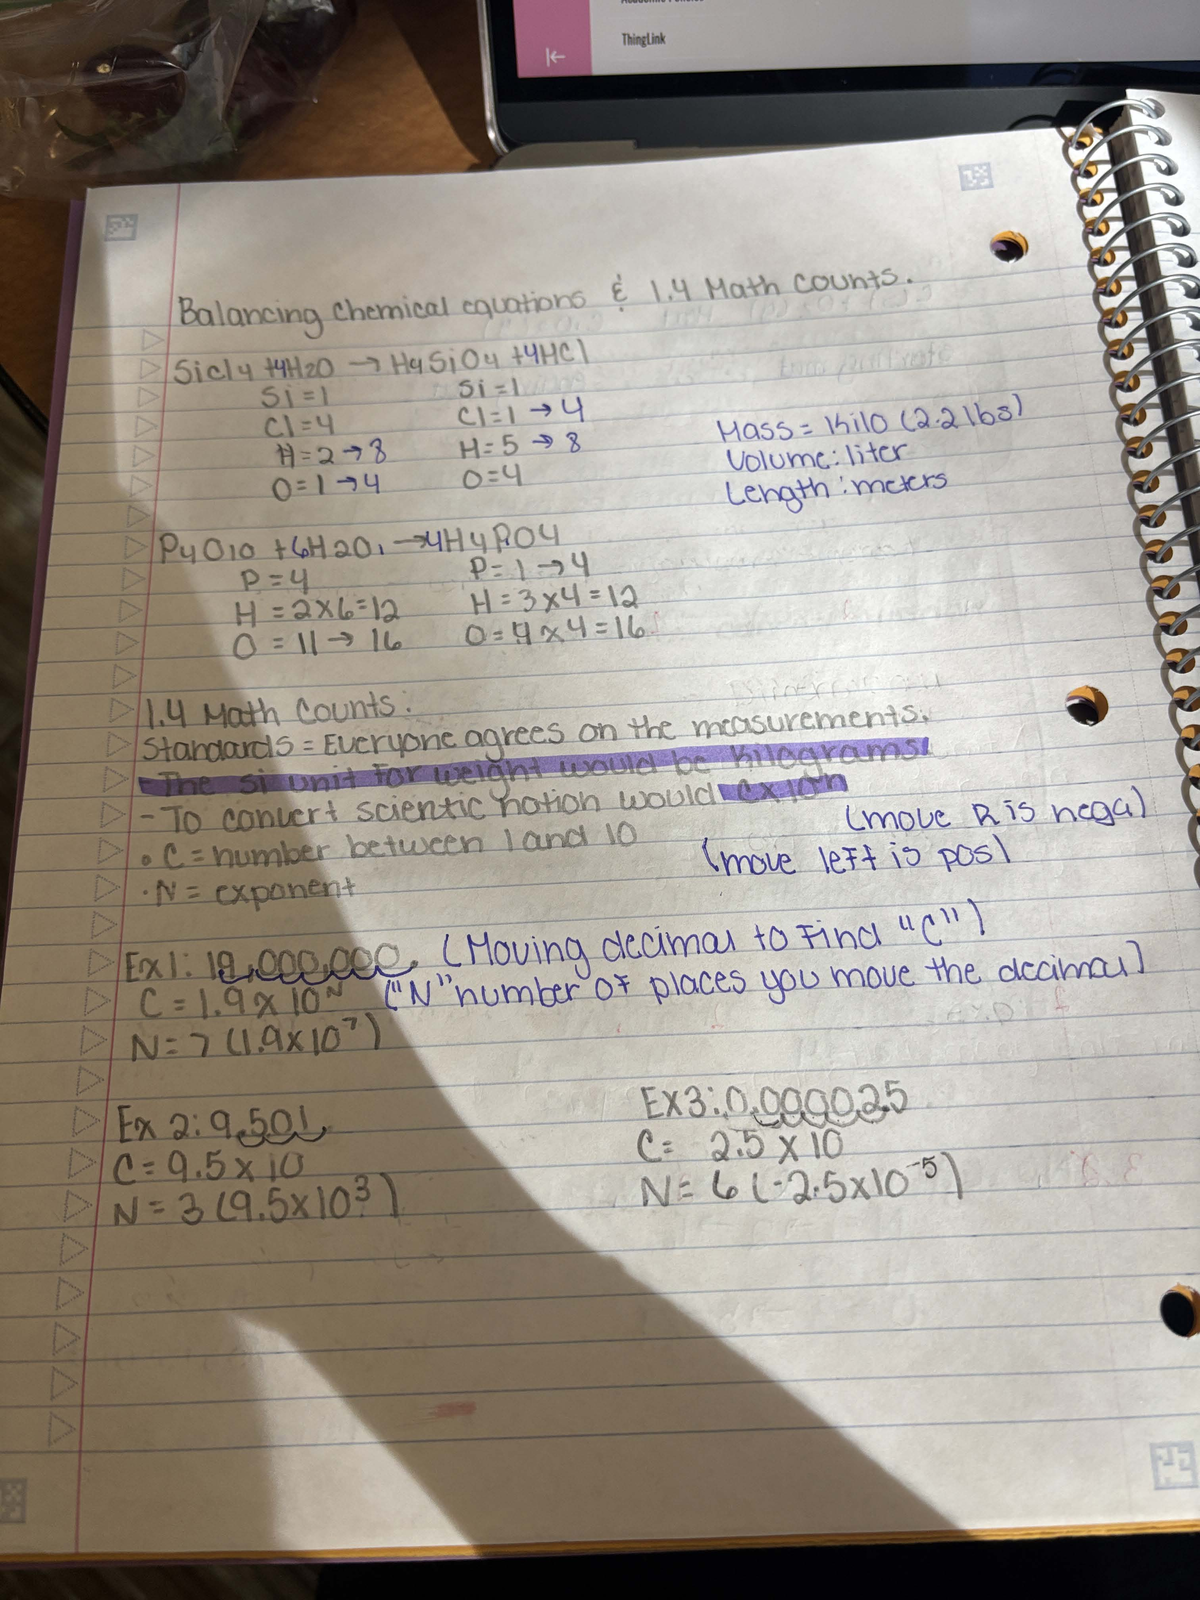 ThingLink
Balancing Chemical equations & 1.4 Math Counts.
SiCl4 +4H2O → H4SiO4 +4HCl
Si=1 Si=1
Cl=4 Cl=1 → 4
H=2→8 H=5 → 8
O=1→4 O=4
Mass = Kilo (2.2 lbs)
Volume: liter
Length: meters
P4O10 +6H2O, →4H4PO4
P=4 P=1→4
H=2x6=12 H=3x4=12
O=11→16 O=4x4=16
1.4 Math Counts:
Standards = Everyone agrees on the measurements.
-The Si unit for weight would be kilograms.
- To convert scientic notion would Cx10^n
(move R is nega)
• C=number between 1 and 10
(move left is pos)
• N= exponent
Ex1: 19,000,000. (Moving decimal to Find "C")
C=1.9x10^N ("N" number of places you move the decimal)
N=7 (1.9x10^7)
Ex 2: 9,501
C=9.5x10
N=3 (9.5x10^3)
EX3: 0.000025
C= 2.5x10
N= 6 (-2.5x10^-5)